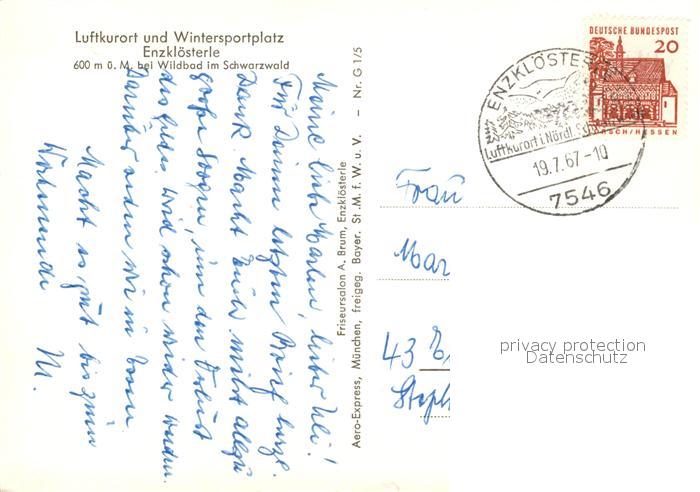 Luftkurort und Wintersportplatz
Enzklösterle
600 m ü. M. bei Wildbad im Schwarzwald
Meine liebe Marlen, lieber Uli!
Für Deinen letzten Brief herzl.
Dank. Macht Euch nicht allzu
große Sorgen, um den Verlust
des Geldes, wird schon wieder werden.
Darüber reden wir in
Macht es gut bis zum
Wochenende M.
Friseursalon A. Brum, Enzklösterle
Aero-Express, München, freigeg. Bayer. St. M. f. W. u. V. - Nr. G 1/5
DEUTSCHE BUNDESPOST
20
LORSCH/HESSEN
ENZKLÖSTERLE
Luftkurort i. Nördl. Schwarzw.
19.7.67-10
7546
Frau
Mar
43 E
Steph
privacy protection
Datenschutz